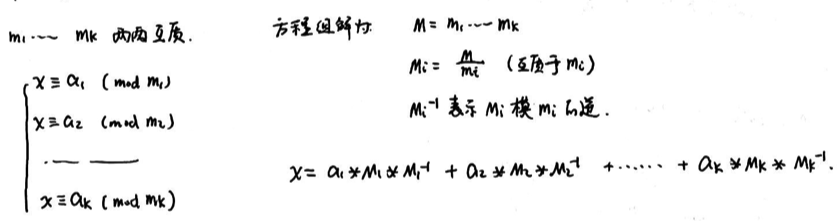 m₁ …… mₖ 两两互质.
x ≡ a₁ (mod m₁)
x ≡ a₂ (mod m₂)
……
x ≡ aₖ (mod mₖ)
方程组解为: M = m₁ …… mₖ
Mᵢ = M/mᵢ (互质于 mᵢ)
Mᵢ⁻¹ 表示 Mᵢ 模 mᵢ 的逆.
x = a₁ * M₁ * M₁⁻¹ + a₂ * M₂ * M₂⁻¹ + …… + aₖ * Mₖ * Mₖ⁻¹.